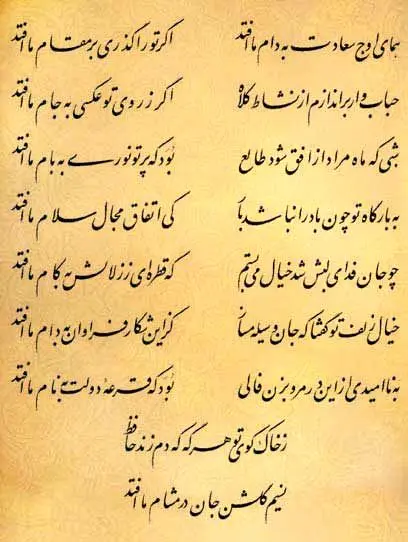 همای اوج سعادت به دام ما افتد اگر تو را گذری بر مقام ما افتد
حباب وار براندازم از نشاط کلاه اگر ز روی تو عکسی به جام ما افتد
شبی که ماه مراد از افق شود طالع بود که پرتو نوری به بام ما افتد
به بارگاه تو چون باد را نباشد بار کی اتفاق مجال سلام ما افتد
چو جان فدای لبش شد خیال می‌بستم که قطره‌ای ز زلالش به کام ما افتد
خیال زلف تو گفتا که جان وسیله مساز کزین شکار فراوان به دام ما افتد
به ناامیدی از این در مرو بزن فالی بود که قرعهٔ دولت به نام ما افتد
ز خاک کوی تو هر گه که دم زند حافظ
نسیم گلشن جان در مشام ما افتد